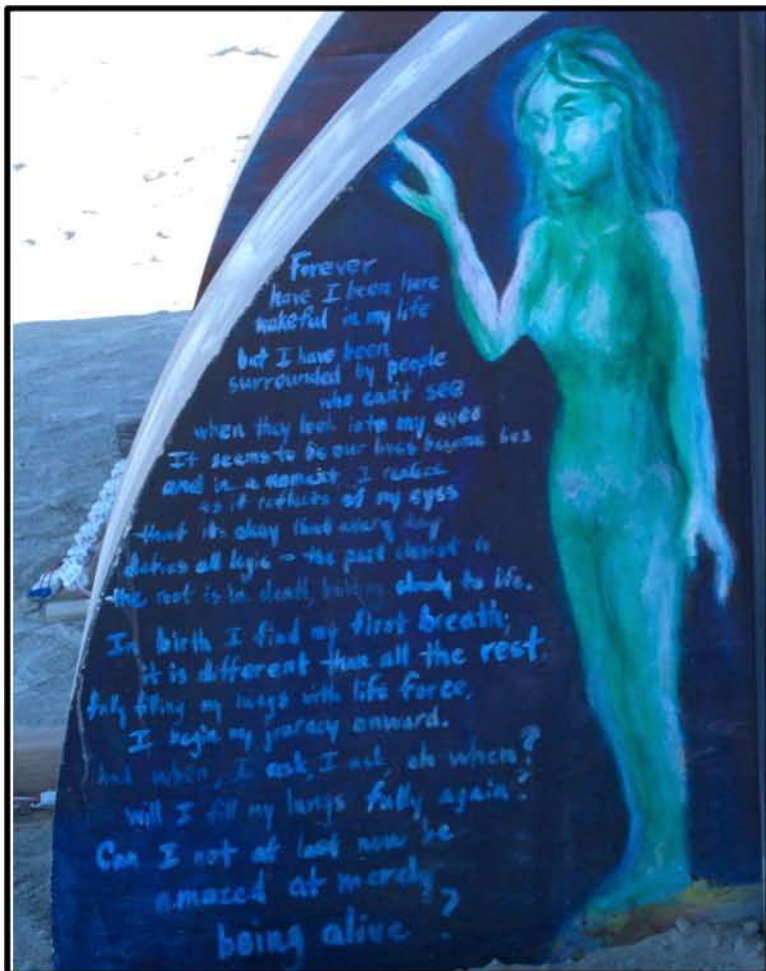 Forever
have I been here
wakeful in my life
but I have been
surrounded by people
who can't see
when they look into my eyes
It seems to be our lives become
and in a moment, I realize
as it reflects of my eyes
that it's okay that every day
all logic – the part closest to
the root is in death, building slowly to life.
In birth I find my first breath;
it is different than all the rest.
fully filling my lungs with life force,
I begin my journey onward.
And when, I ask, I ask, oh when?
will I fill my lungs fully again?
Can I not at last now be
amazed at merely
being alive?